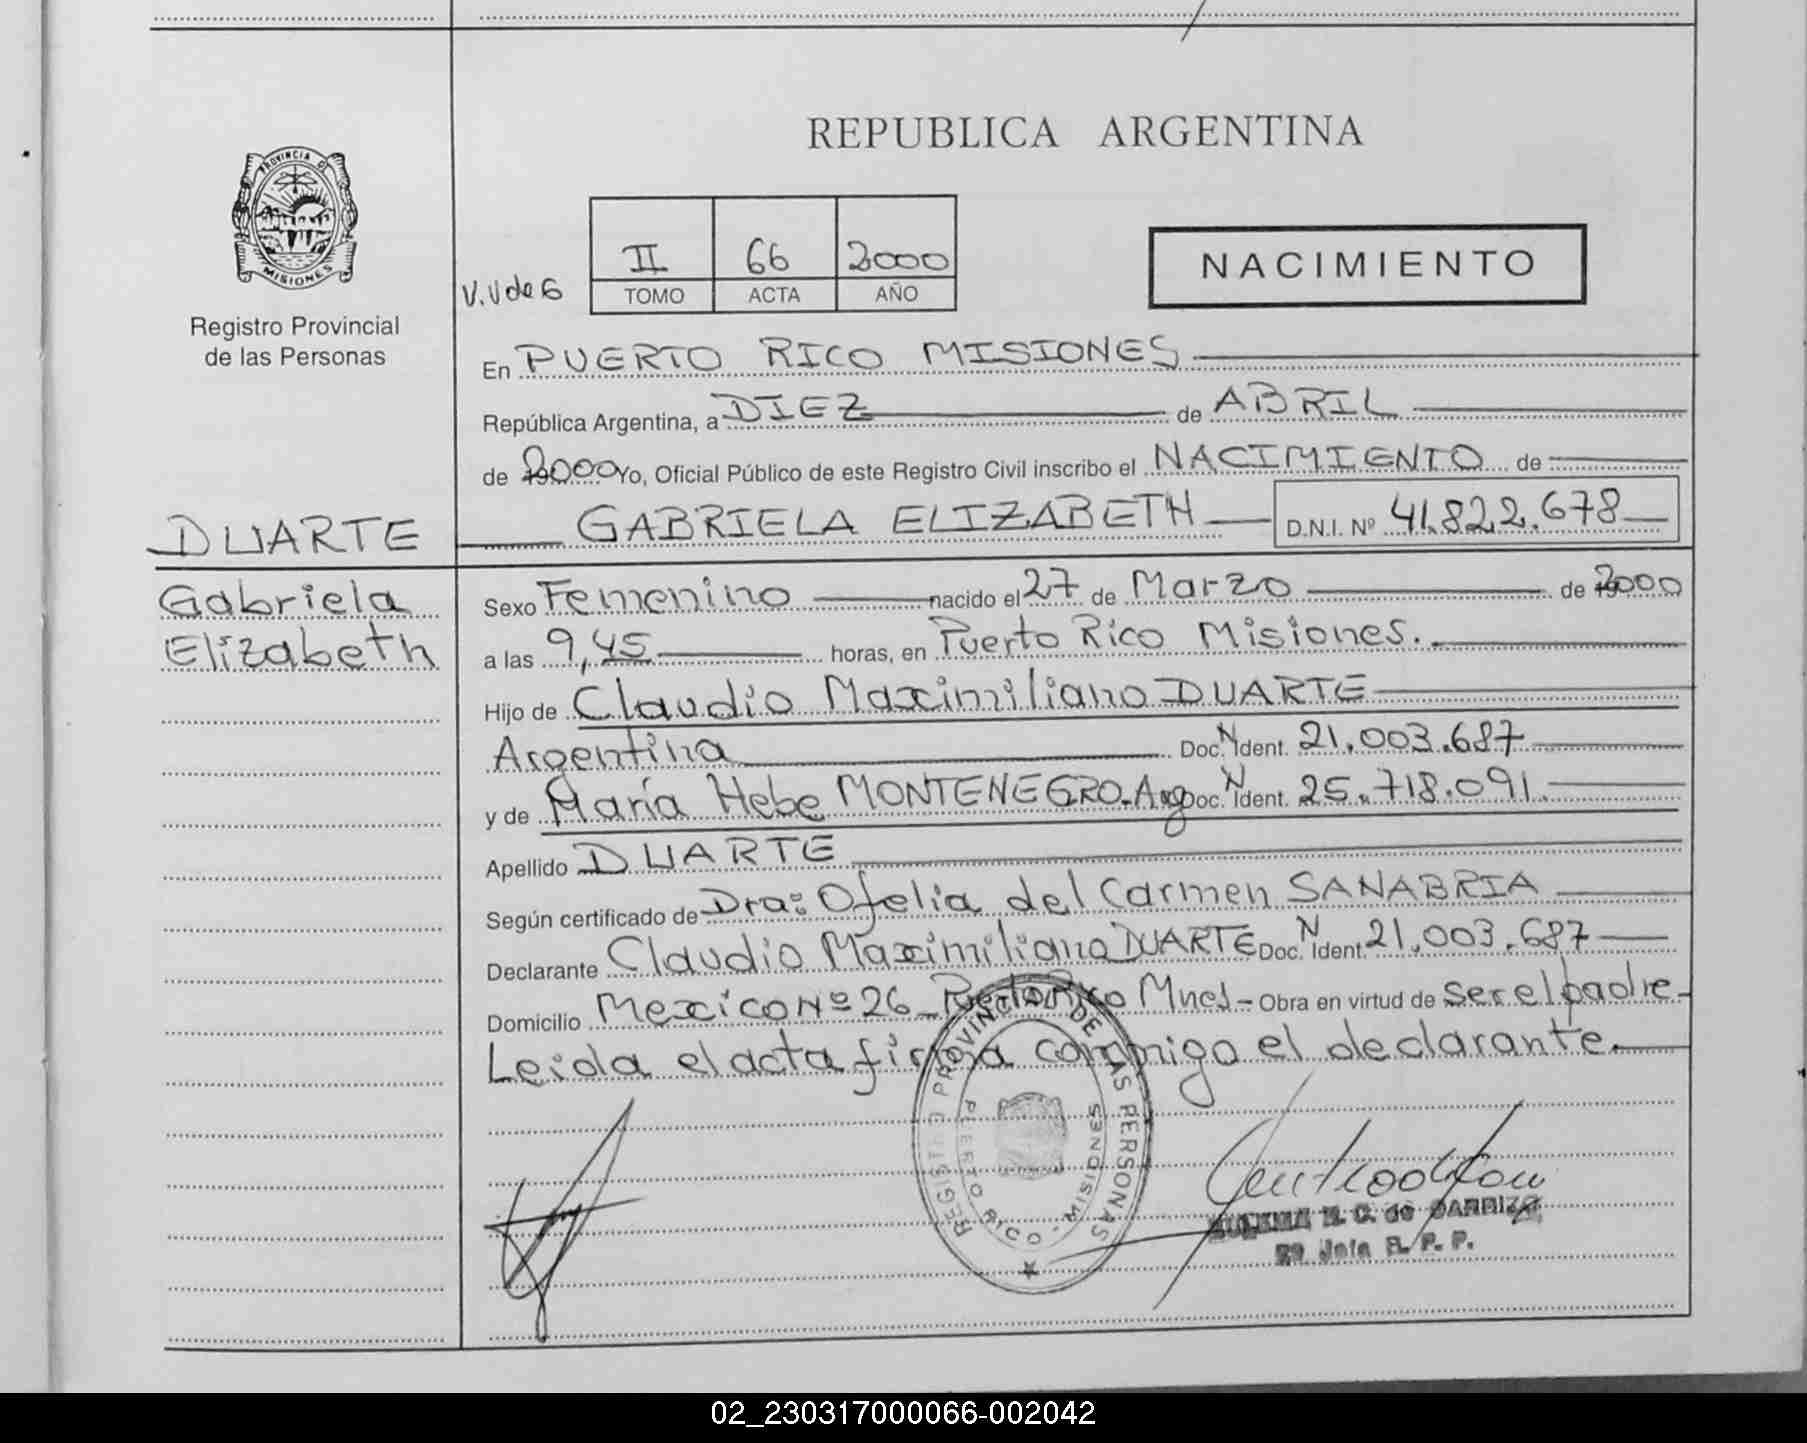 REPUBLICA ARGENTINA
PROVINCIA DE MISIONES
Registro Provincial
de las Personas
V.V de G
II 66 2000
TOMO ACTA AÑO
NACIMIENTO
En PUERTO RICO MISIONES
República Argentina, a DIEZ de ABRIL
de 2000 Yo, Oficial Público de este Registro Civil inscribo el NACIMIENTO de
DUARTE GABRIELA ELIZABETH D.N.I. Nº 41.822.678
Gabriela
Elizabeth
Sexo Femenino nacido el 27 de Marzo de 2000
a las 9,45 horas, en Puerto Rico Misiones.
Hijo de Claudio Maximiliano DUARTE
Argentina Doc. N Ident. 21.003.687
y de María Hebe MONTENEGRO. Arg Doc. N Ident. 25.718.091.
Apellido DUARTE
Según certificado de Dra: Ofelia del Carmen SANABRIA
Declarante Claudio Maximiliano DUARTE Doc. N Ident. 21.003.687
Domicilio Mexico Nº 26 - Puerto Rico Mnes - Obra en virtud de ser el padre -
Leida el acta firma conmigo el declarante.
REGISTRO PROVINCIAL DE LAS PERSONAS
PUERTO RICO - MISIONES
C. de CARRIZO
Jefa R. P. P.
02_230317000066-002042